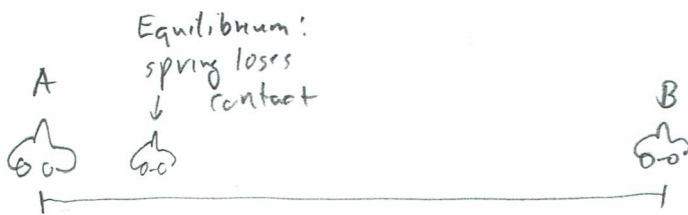 Equilibrium:
spring loses
contact
A
B